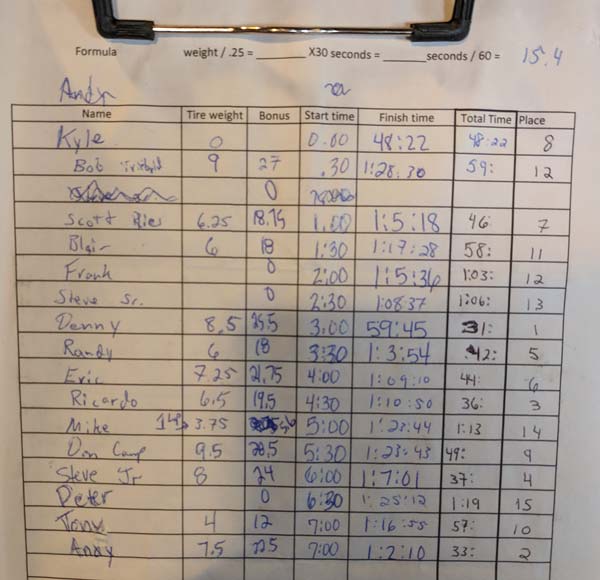 Formula weight / .25 = ________ X30 seconds = ________ seconds / 60 = 15.4
Andy
Name Tire weight Bonus Start time Finish time Total Time Place
Kyle 0 0.00 48:22 48:22 8
Bob 9 27 .30 1:28:30 59: 12
0
Scott Ries 6.25 18.75 1.00 1:5:18 46: 7
Blair 6 18 1:30 1:17:28 58: 11
Frank 0 2:00 1:5:36 1:03: 12
Steve Sr. 0 2:30 1:08 37 1:06: 13
Denny 8.5 25.5 3.00 59:45 31: 1
Randy 6 18 3:30 1:3:54 42: 5
Eric 7.25 21.75 4:00 1:09:10 44: 6
Ricardo 6.5 19.5 4:30 1:10:50 36: 3
Mike 3.75 5:00 1:23:44 1:13 14
Don Camp 9.5 28.5 5:30 1:23:43 49: 9
Steve Jr 8 24 6:00 1:7:01 37: 4
Peter 0 6:30 1:25:12 1:19 15
Tony 4 12 7:00 1:16:55 57: 10
Andy 7.5 22.5 7:00 1:2:10 33: 2